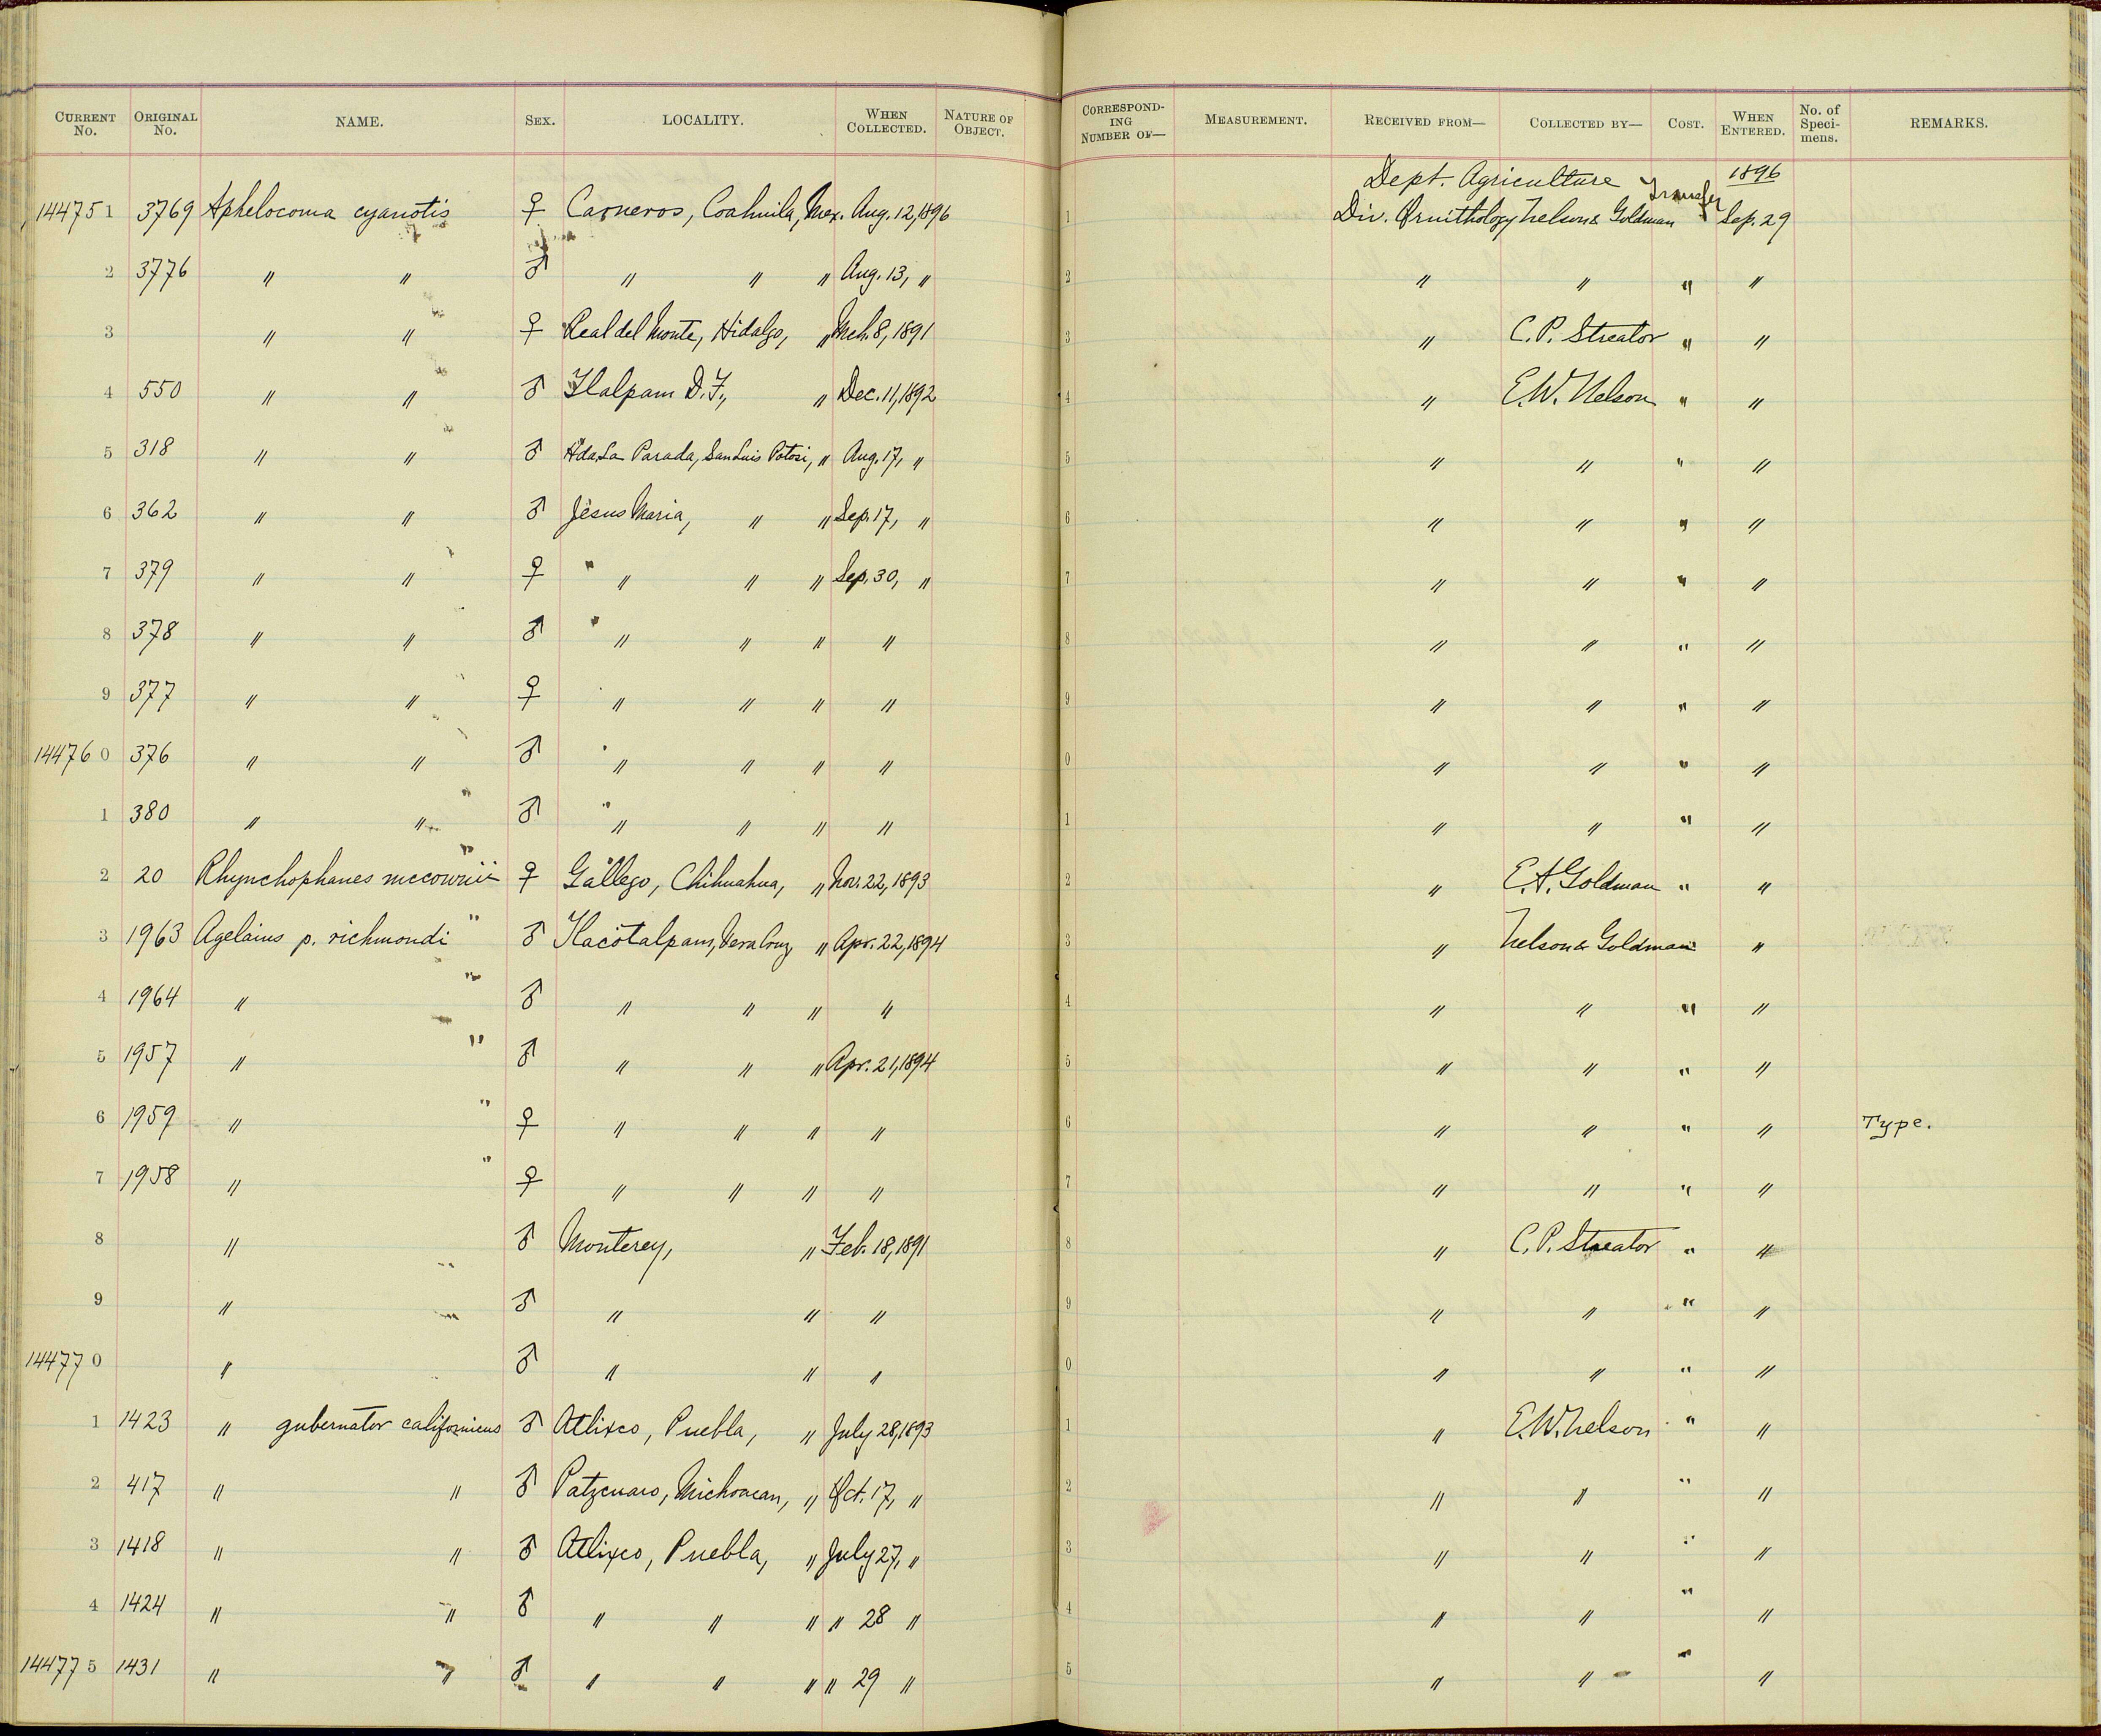 CURRENT No. ORIGINAL No. NAME. SEX. LOCALITY. WHEN COLLECTED. NATURE OF OBJECT. CORRESPONDING NUMBER OF— MEASUREMENT. RECEIVED FROM— COLLECTED BY— COST. WHEN ENTERED. No. of Specimens. REMARKS.
Dept. Agriculture 1896
144751 3769 Aphelocoma cyanotis ♀ Carneros, Coahuila, Mex. Aug. 12, 1896 1 Div. Ornithology Nelson & Goldman Transfer Sep. 29
2 3776 " " ♂ " " " Aug. 13, " 2 " " " "
3 " " ♀ Real del Monte, Hidalgo, " Mch. 8, 1891 3 " C. P. Streator " "
4 550 " " ♂ Tlalpam D. F., " Dec. 11, 1892 4 " E. W. Nelson " "
5 318 " " ♂ Hda. La Parada, San Luis Potosi, " Aug. 17, " 5 " " " "
6 362 " " ♂ Jesus Maria, " " Sep. 17, " 6 " " " "
7 379 " " ♀ " " " Sep. 30, " 7 " " " "
8 378 " " ♂ " " " " 8 " " " "
9 377 " " ♀ " " " " 9 " " " "
144760 376 " " ♂ " " " " 0 " " " "
1 380 " " ♂ " " " " 1 " " " "
2 20 Rhynchophanes mccownii ♀ Gallego, Chihuahua, " Nov. 22, 1893 2 " E. A. Goldman " "
3 1963 Agelaius p. richmondi " ♂ Tlacotalpam, Vera Cruz " Apr. 22, 1894 3 " Nelson & Goldman " "
4 1964 " " ♂ " " " " 4 " " " "
5 1957 " " ♂ " " " Apr. 21, 1894 5 " " " "
6 1959 " " ♀ " " " " 6 " " " " Type.
7 1958 " " ♀ " " " " 7 " " " "
8 " ♂ Monterey, " Feb. 18, 1891 8 " C. P. Streator " "
9 " ♂ " " " 9 " " " "
144770 " ♂ " " " 0 " " " "
1 1423 " gubernator californicus ♂ Atlixco, Puebla, " July 28, 1893 1 " E. W. Nelson " "
2 417 " " ♂ Patzcuaro, Michoacan, " Oct. 17, " 2 " " " "
3 1418 " " ♂ Atlixco, Puebla, " July 27, " 3 " " " "
4 1424 " " ♂ " " " " 28 " 4 " " " "
144775 1431 " " ♂ " " " " 29 " 5 " " " "